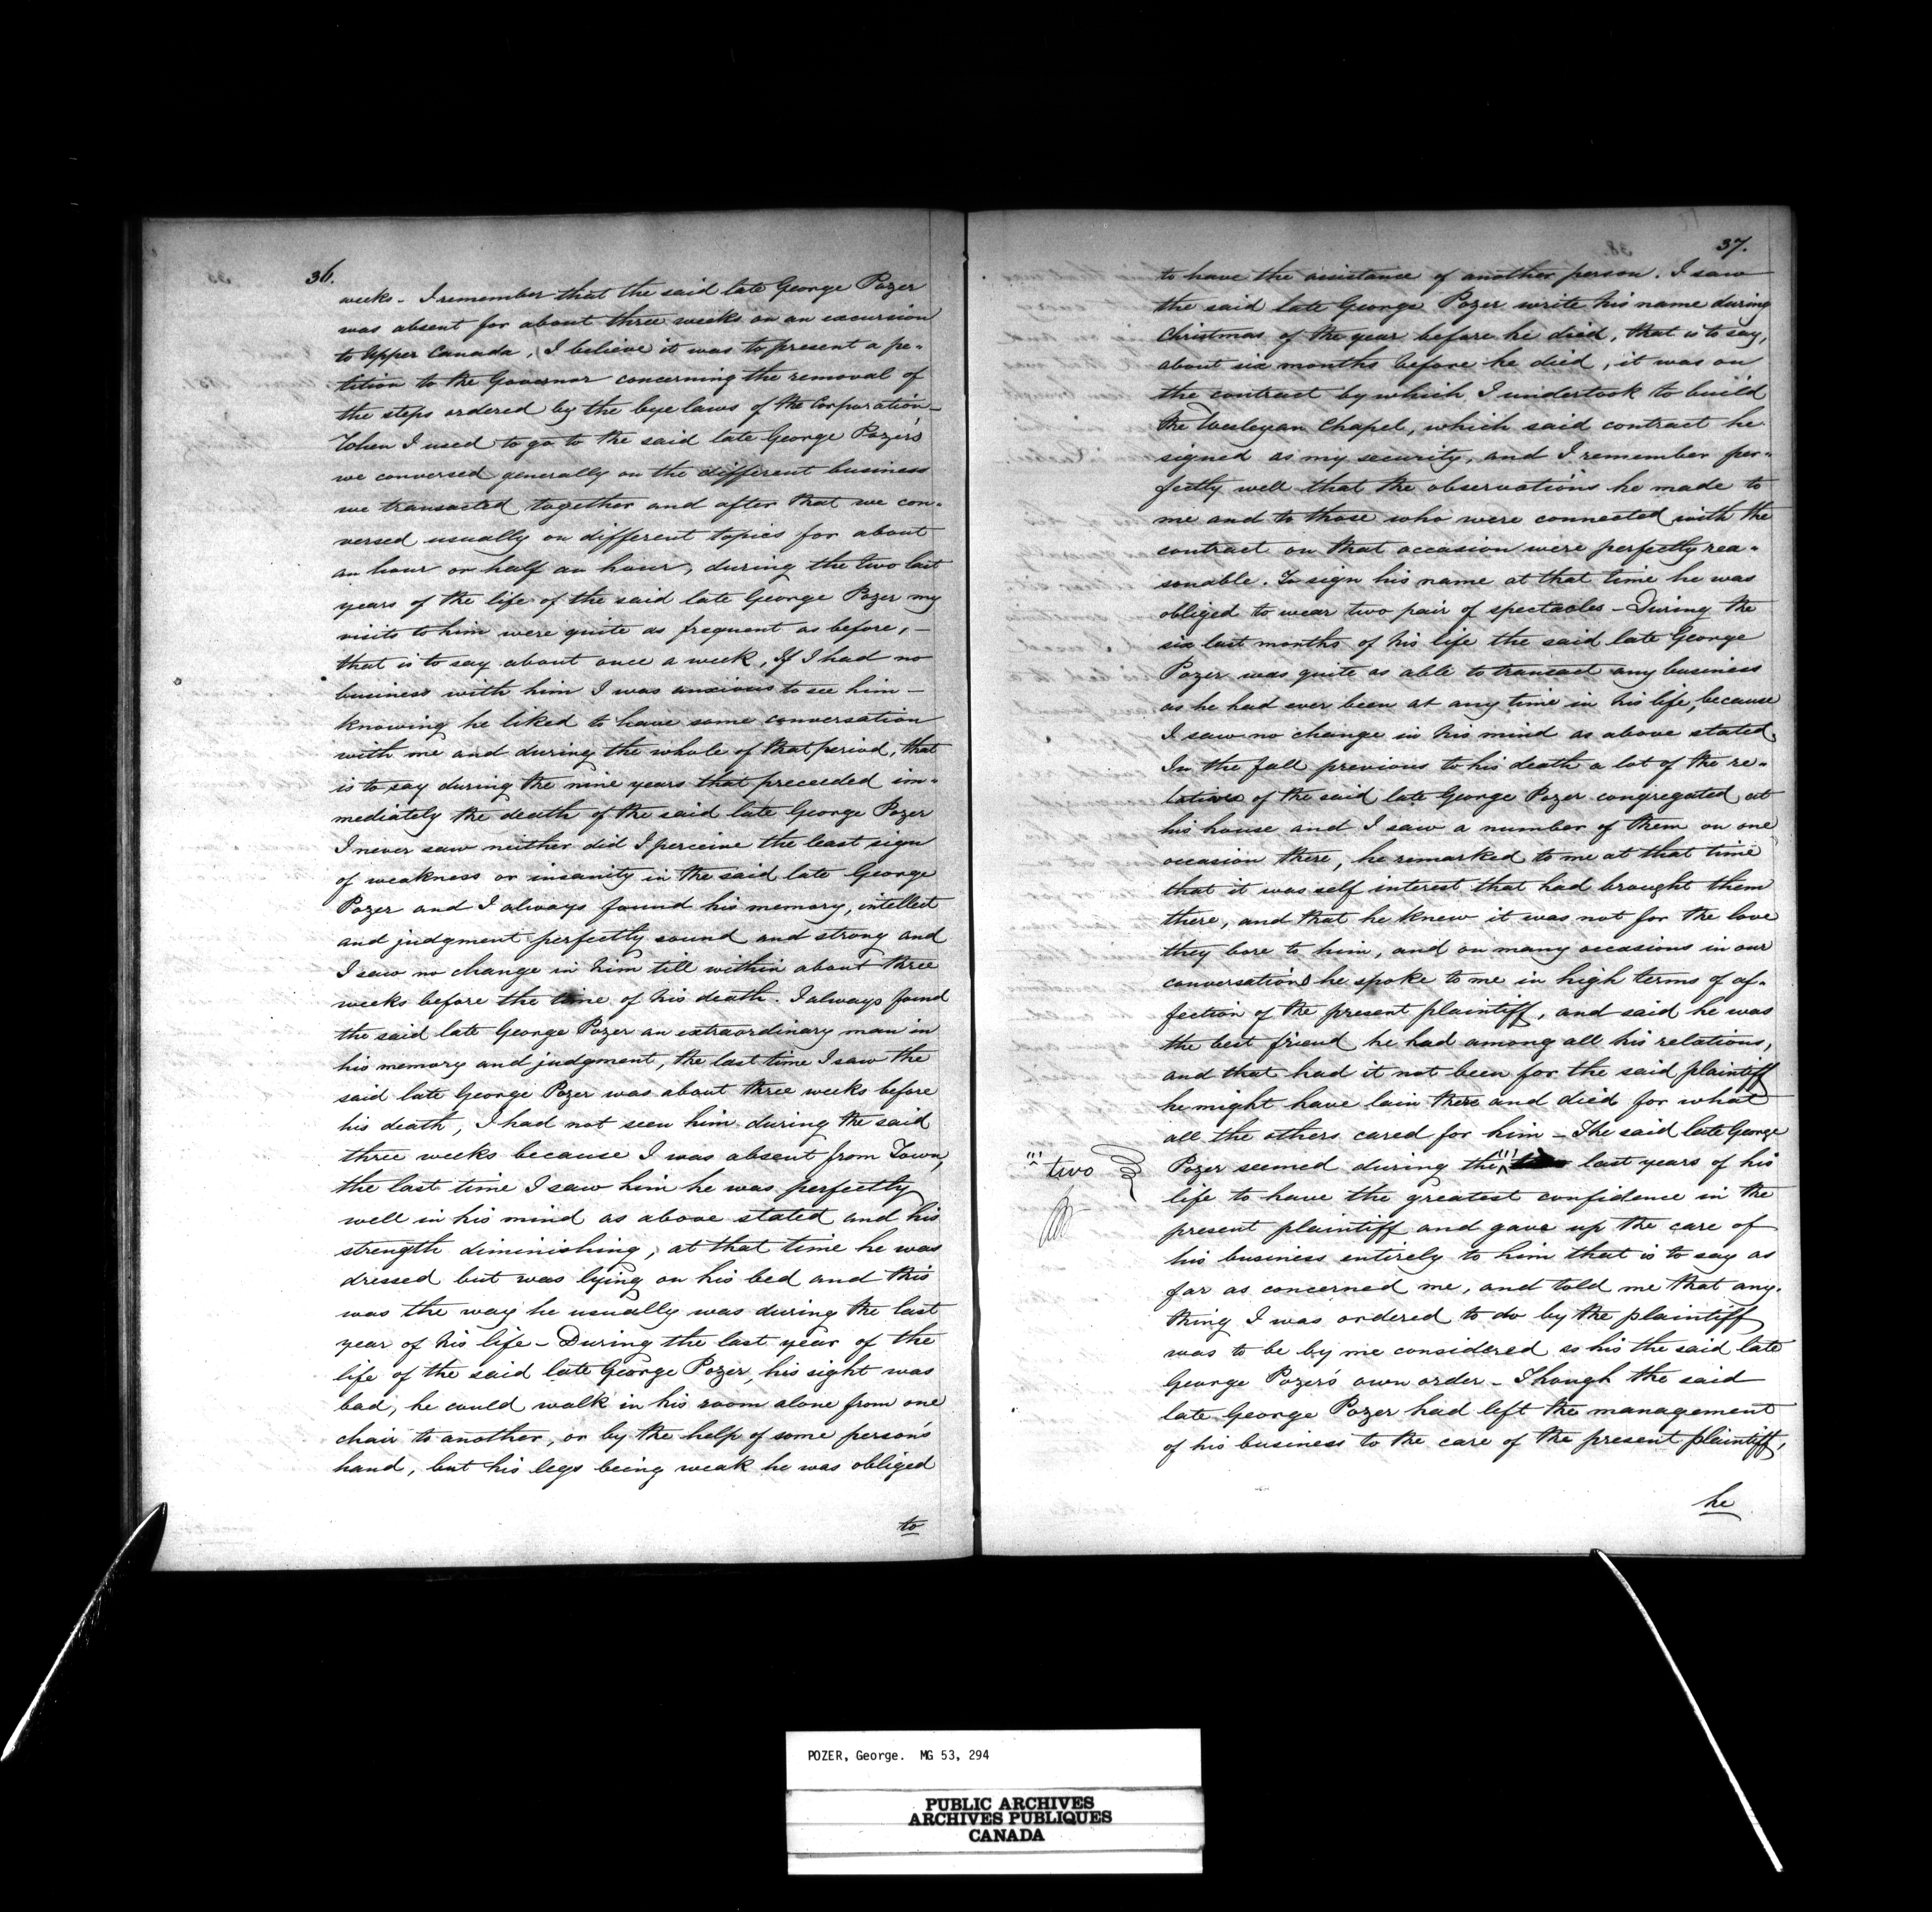 36.
weeks - I remember that the said late George Pozer
was absent for about three weeks on an excursion
to Upper Canada, I believe it was to present a pe-
tition to the Governor concerning the removal of
the steps ordered by the bye laws of the Corporation -
When I used to go to the said late George Pozer's
we conversed generally on the different business
we transacted together and after that we con-
versed usually on different topics for about
an hour or half an hour, during the two last
years of the life of the said late George Pozer my
visits to him were quite as frequent as before, -
that is to say about once a week, If I had no
business with him I was anxious to see him -
knowing he liked to have some conversation
with me and during the whole of that period, that
is to say during the nine years that preceeded im-
mediately the death of the said late George Pozer
I never saw neither did I perceive the least sign
of weakness or insanity in the said late George
Pozer and I always found his memory, intellect
and judgment perfectly sound and strong and
I saw no change in him till within about three
weeks before the time of his death. I always found
the said late George Pozer an extraordinary man in
his memory and judgment, the last time I saw the
said late George Pozer was about three weeks before
his death, I had not seen him during the said
three weeks because I was absent from Town,
the last time I saw him he was perfectly
well in his mind as above stated and his
strength diminishing, at that time he was
dressed but was lying on his bed and this
was the way he usually was during the last
year of his life - During the last year of the
life of the said late George Pozer, his sight was
bad, he could walk in his room alone from one
chair to another, or by the help of some person's
hand, but his legs being weak he was obliged
to
37.
to have the assistance of another person. I saw
the said late George Pozer write his name during
Christmas of the year before he died, that is to say,
about six months before he died, it was on
the contract by which I undertook to build
the Wesleyan Chapel, which said contract he
signed as my security, and I remember per-
fectly well that the observations he made to
me and to those who were connected with the
contract on that occasion were perfectly rea-
sonable. To sign his name at that time he was
obliged to wear two pair of spectacles - During the
six last months of his life the said late George
Pozer was quite as able to transact any business
as he had ever been at any time in his life, because
I saw no change in his mind as above stated,
In the fall previous to his death a lot of the re-
latives of the said late George Pozer congregated at
his house and I saw a number of them on one
occasion there, he remarked to me at that time
that it was self interest that had brought them
there, and that he knew it was not for the love
they bore to him, and on many occasions in our
conversations he spoke to me in high terms of af-
fection of the present plaintiff, and said he was
the best friend he had among all his relations,
and that had it not been for the said plaintiff
he might have lain there and died for what
all the others cared for him - The said late George
two
Pozer seemed during the last years of his
life to have the greatest confidence in the
present plaintiff and gave up the care of
his business entirely to him that is to say as
far as concerned me, and told me that any-
thing I was ordered to do by the plaintiff
was to be by me considered as his the said late
George Pozer's own order - Though the said
late George Pozer had left the management
of his business to the care of the present plaintiff,
he
POZER, George. MG 53, 294
PUBLIC ARCHIVES
ARCHIVES PUBLIQUES
CANADA